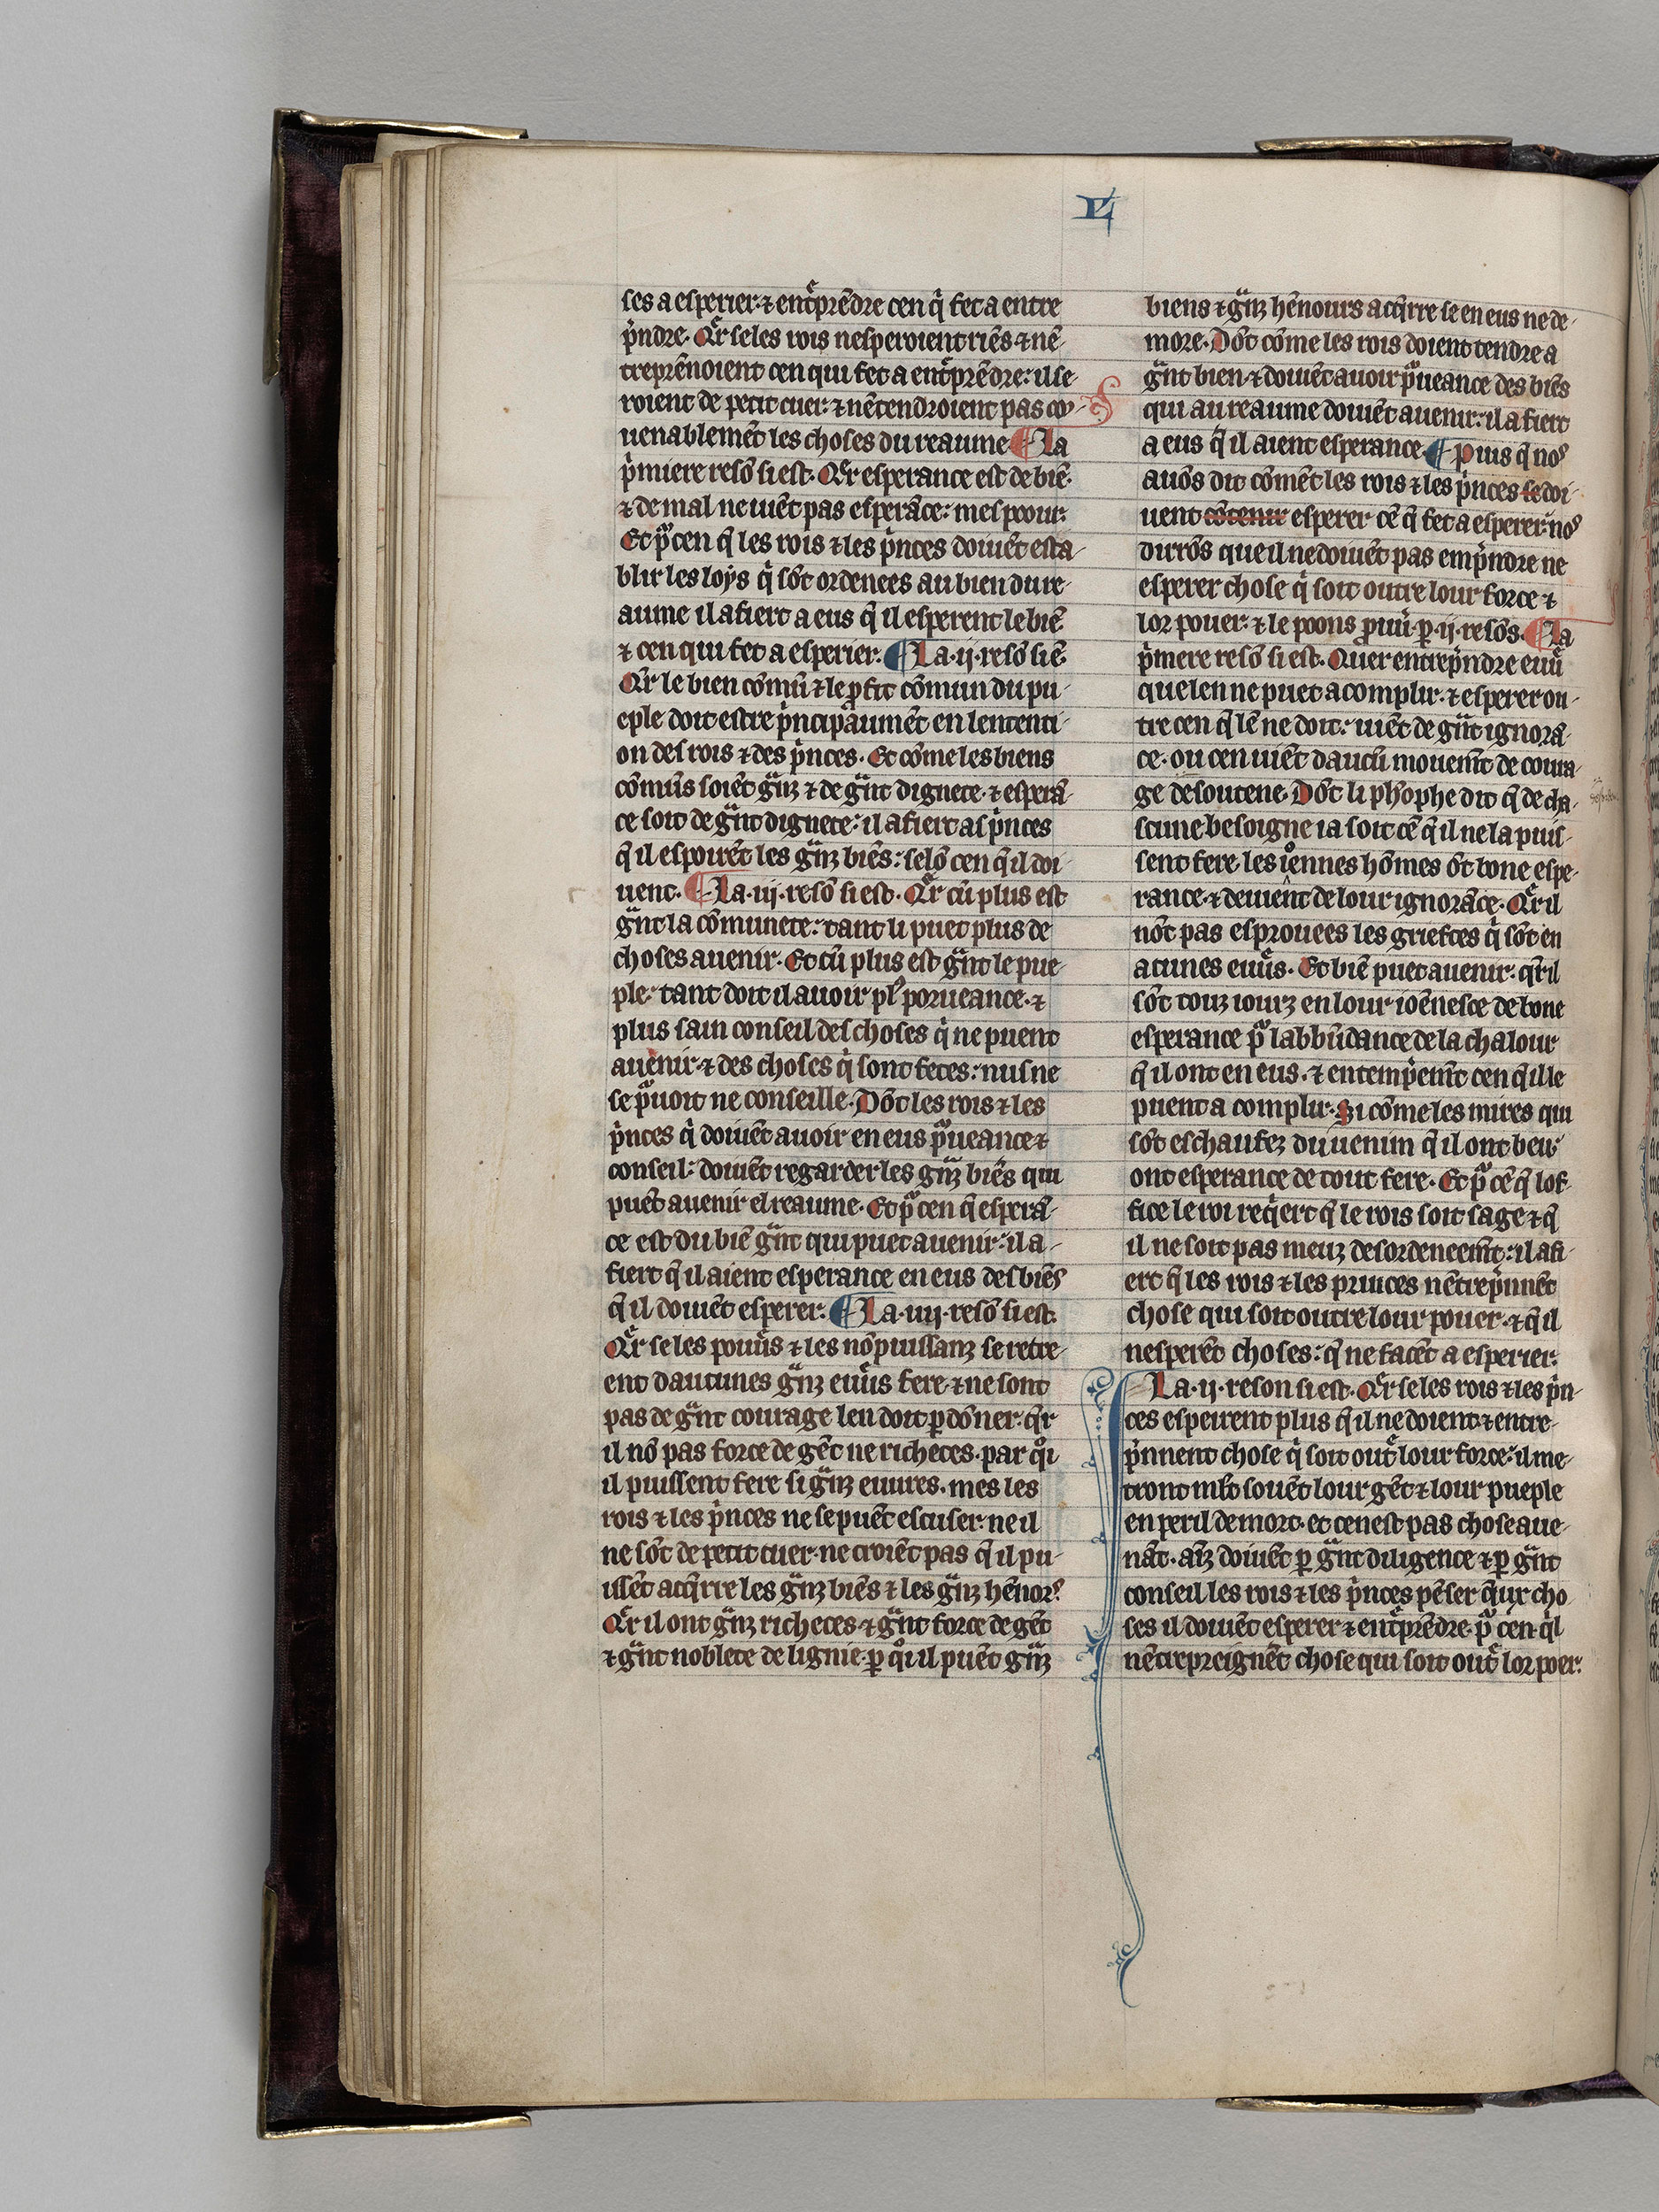 L
ses a esperier: ⁊ ent͛prēdre cen q̇ fet a entre
pͥndre. Qr͛ se les rois nesperoient riēs ⁊ nē-
treprēnoient cen qui fet a ent͛prēdre: il se-
roient de petit cuer: ⁊ nētendroient pas co-
uenablemēt les choses du reaume ¶ La
pͥmiere resō si est. Qr͛ esperance est de biē.
⁊ de mal ne uiēt pas esperāce: mes poour:
Et pͦ cen q̄ les rois ⁊ les pͥnces doiuēt esta-
blir les loys q̇ sōt ordenees au bien du re-
aume il afiert a eus q̄ il esperent le biē
⁊ cen qui fet a esperier. ¶ La .ij. resō si ē.
Qr͛ le bien cōmū ⁊ le ꝓfit cōmun du pu-
eple doit estre pͥncipaumēt en lentenci-
on des rois ⁊ des pͥnces. Et cōme les biens
cōmūs soiēt gᷓnz ⁊ de gᷓnt dignete. ⁊ esperā-
ce soit de gᷓnt dignete: il afiert as pͥnces
q̄ il espoirēt les gᷓnz biēs: selō cen q̄ il doi-
uent. ¶ La .iij. resō si est. Qr͛ cū plus est
gᷓnt la cōmunete: tant li puet plus de
choses auenir. Et cū plus est gᷓnt le pue-
ple: tant doit il auoir plꝰ porueance. ⁊
plus sain conseil des choses q̇ ne puent
auenir. ⁊ des choses q̇ sont fetes: nus ne
se pͦuoit ne conseille. Dōt les rois ⁊ les
pͥnces q̇ doiuēt auoir en eus pͦueance ⁊
conseil: doiuēt regarder les gᷓnz biēs qui
puēt auenir el reaume. Et pͦ cen q̄ esperā-
ce est du biē gᷓnt qui puet auenir: il a-
fiert q̄ il aient esperance en eus des biēs
q̄ il doiuēt esperer. ¶ La .iiij. resō si est.
Qr͛ se les pou͛s ⁊ les nō puissanz se retre-
ent daucunes gᷓnz euu͛s fere ⁊ ne sont
pas de gᷓnt courage len doit ꝑdōner. qr͛
il nō pas force de gēt ne richeces. par qͦi
il puissent fere si gᷓnz euures. mes les
rois ⁊ les pͥnces ne se puēt escuser: ne il
ne sōt de petit cuer. ne croiēt pas q̄ il pu-
issēt acq̄rre les gᷓnz biēs ⁊ les gᷓnz hēnorˢ.
Qr͛ il ont gᷓnz richeces ⁊ gᷓnt force de gēt
⁊ gᷓnt noblete de lignie. ꝑ qͦi il puēt gᷓnz
biens ⁊ gᷓnz hēnours acq̄rre se en eus ne de-
more. Dōt cōme les rois doient tendre a
gᷓnt bien. ⁊ doiuēt auoir pͦueance des biēs
qui au reaume doiuēt auenir: il afiert
a eus q̄ il aient esperance. ¶ Puis q̄ noꝰ
auōs dit cōmēt les rois ⁊ les pͥnces se doi-
uent cōtenir esperer cē q̄ fet a esperer: noꝰ
dirrōs que il ne doiuēt pas empͥndre ne
esperer chose q̇ soit outre lour force ⁊
lor pouer. ⁊ le poons ꝓuu͛. ꝑ .ij. resōs. ¶ La
pͥmere resō si est. Quer entrepͥndre euu͛
que len ne puet acomplir. ⁊ esperer ou-
tre cen q̄ lē ne doit: uiēt de gᷓnt ignorā-
ce. ou cen uiēt daucū mouemēt de coura-
ge desoutene. Dōt li phōphe dit q̄ de cha-
scune besoigne ia soit cē q̄ il ne la puis-
sent fere les iͦennes hōmes ōt bone espe-
rance. ⁊ deuient de lour ignorāce. Qr͛ il
nōt pas esprouees les grieftes q̇ sōt en
acunes euu͛s. Et biē puet auenir. qr͛ il
sōt touz iourz en lour ioēnesce de bone
esperance pͦ labbūdance de la chalour
q̄ il ont en eus. ⁊ entempͥemēt cen q̄ il le
puent acomplir. Si cōme les mires qui
sōt eschaufez du uenim q̄ il ont beu:
ont esperance de tout fere. Et pͦ cē q̄ lof-
fice le roi reqͥert q̄ le rois soit sage ⁊ q̄
il ne soit pas meuz desordeneemēt: il afi-
ert q̄ les rois ⁊ les princes nētrepͥnnēt
chose qui soit outre lour pouer. ⁊ q̄ il
nesperēt choses: q̄ ne facēt a esperier.
La .ij. reson si est. Qr͛ se les rois ⁊ les pͥn-
ces espeirent plus q̄ il ne doient. ⁊ entre-
pͥnnent chose q̇ soit out͛ lour force: il me-
tront ml̄t souēt lour gēt ⁊ lour pueple
en peril de mort. et cen est pas chose aue-
nāt. aīz doiuēt ꝑ gᷓnt diligence ⁊ ꝑ gᷓnt
conseil les rois ⁊ les pͥnces pēser q̄ux cho
ses il doiuēt esperer ⁊ ent͛prēdre. pͦ cēn q̇l
nētrepreignēt chose qui soit out͛ lor poer.